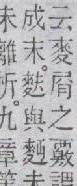 云麥屑之覈
成末。麩與麪
未離析。九章